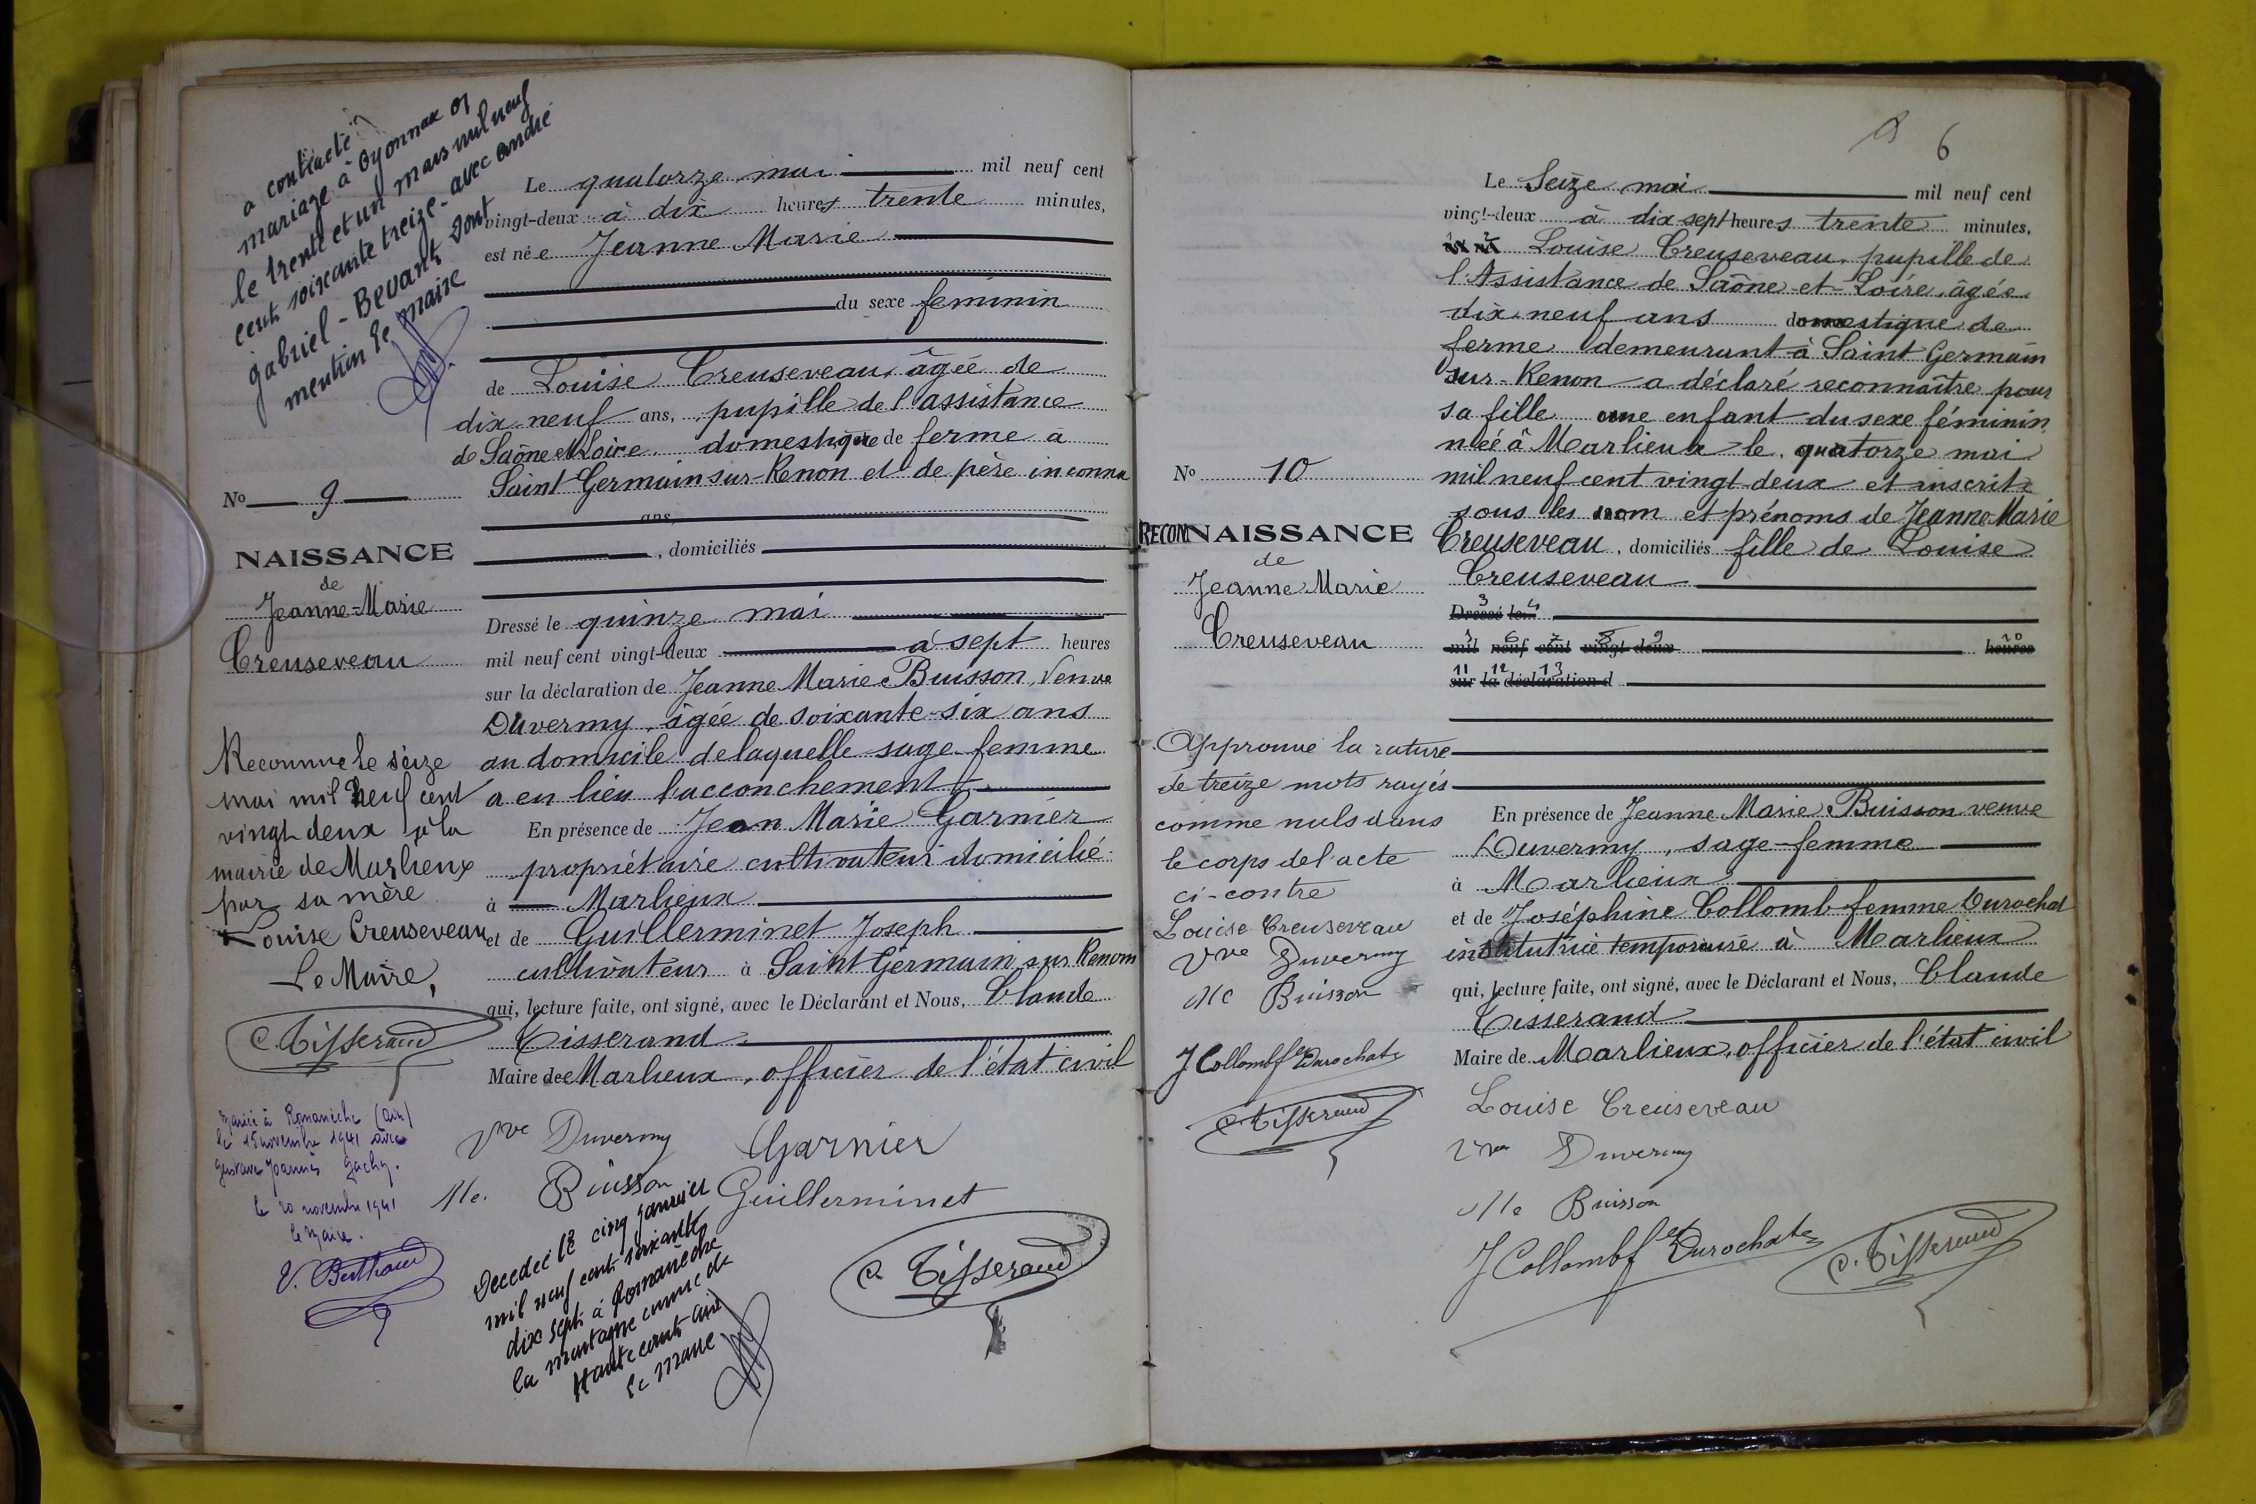 a contracté
mariage à Oyonnax 01
le trente et un mars mil neuf
cent soixante treize - avec André
gabriel - Bevant dont
mention le maire
Le quatorze mai mil neuf cent
vingt-deux à dix heures trente minutes,
est née Jeanne Marie
du sexe féminin
de Louise Creuseveau, âgée de
dix neuf ans, pupille de l'assistance
de Saône et Loire domestique de ferme à
Saint Germain sur-Renon et de père inconnu
ans,
, domiciliés
Dressé le quinze mai
mil neuf cent vingt-deux à sept heures
sur la déclaration de Jeanne Marie Buisson, Veuve
Duvermy, âgée de soixante-six ans
au domicile de laquelle sage-femme
a eu lieu l'accouchement
En présence de Jean Marie Garnier
propriétaire cultivateur domicilié
à Marlieux
et de Guillerminet Joseph
cultivateur à Saint Germain sur Renom
qui, lecture faite, ont signé, avec le Déclarant et Nous, Claude
Tisserand
Maire de Marlieux, officier de l'état civil
Vve Duvermy Garnier
Me. Buisson Guillerminet
C. Tisserand
No 9
NAISSANCE
de
Jeanne=Marie
Creuseveau
Reconnue le seize
mai mil neuf cent
vingt deux à la
mairie de Marlieux
par sa mère
Louise Creuseveau
Le Maire,
C. Tisserand
Mariée à Romanèche (Ain)
le 15 novembre 1941 avec
Gustave Joannès Gachy.
le 20 novembre 1941
le Maire.
V. Berthaud
Decedée le cinq janvier
mil neuf cent soixante
dix sept à Romanèche
la montagne commune de
Hautecourt Ain
le maire
6
Le Seize mai mil neuf cent
vingt-deux à dix sept heures trente minutes,
Louise Creuseveau, pupille de
l'Assistance de Saône-et-Loire, âgée
dix-neuf ans domestique de
ferme demeurant à Saint Germain
sur-Renon a déclaré reconnaître pour
sa fille une enfant du sexe féminin
née à Marlieux le quatorze mai
mil neuf cent vingt-deux et inscrite
sous les nom et prénoms de Jeanne-Marie
Creuseveau, domiciliés fille de Louise
Creuseveau
Dressé le
mil neuf cent vingt-deux heures
sur la déclaration d
En présence de Jeanne Marie Buisson veuve
Duvermy, sage-femme
à Marlieux
et de Joséphine Collomb femme Durochat
institutrice temporaire à Marlieux
qui, lecture faite, ont signé, avec le Déclarant et Nous, Claude
Tisserand
Maire de Marlieux, officier de l'état civil
Louise Creuseveau
Vve Duvermy
Me Buisson
J Collomb fe Durochat
C. Tisserand
No 10
RECONNAISSANCE
de
Jeanne Marie
Creuseveau
Approuvé la rature
de treize mots rayés
comme nuls dans
le corps de l'acte
ci-contre
Louise Creuseveau
Vve Duvermy
Me Buisson
J Collomb fe Durochat
C. Tisserand